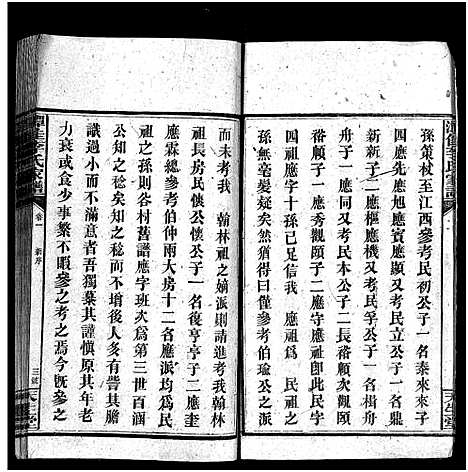 孫策杖至江西參考民初公子一名泰來來子
四應先應旭應賓應顯又考民立公子一名鼎
新新子二應樞應機又考民孚公子一名楫舟
舟子一應秀觀頤子二應守應祥公子
騰子一應秀觀頤子二應守應祥以上應字同
派四應字十孫已足信我 應祖爲 民公之
孫無毫髮疑矣然猶得曰僅參考伯瑜公之派
而未考我 翰林祖之嫡派則請進考我翰林
祖長房民懷公懷公子一名復亨亨子二應奎
應霖總參考伯仲兩大房十二名應派均爲民
祖之孫則谷村舊譜應字班次爲第三世百涸
公知之稔而不增後人多有訾其膽
識過小而不滿意者吾獨葉其謹愼原其年老
力衰或食少事繁不暇參之考之焉今旣參之
卷一
新序
三號
天生堂
天生堂